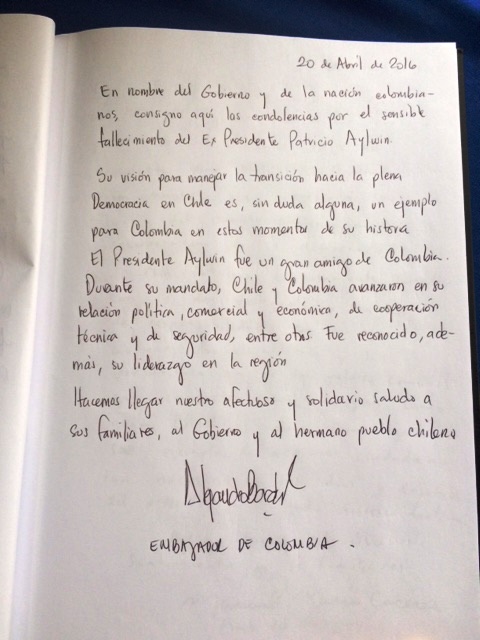 20 de Abril de 2016
En nombre del Gobierno y de la nación colombia-
nos, consigno aquí las condolencias por el sensible
fallecimiento del Ex Presidente Patricio Aylwin.
Su visión para manejar la transición hacia la plena
Democracia en Chile es, sin duda alguna, un ejemplo
para Colombia en estos momentos de su historia
El Presidente Aylwin fue un gran amigo de Colombia.
Durante su mandato, Chile y Colombia avanzaron en su
relación política, comercial y económica, de cooperación
técnica y de seguridad, entre otras Fue reconocido, ade-
más, su liderazgo en la región
Hacemos llegar nuestro afectuoso y solidario saludo a
sus familiares, al Gobierno y al hermano pueblo chileno
EMBAJADOR DE COLOMBIA.